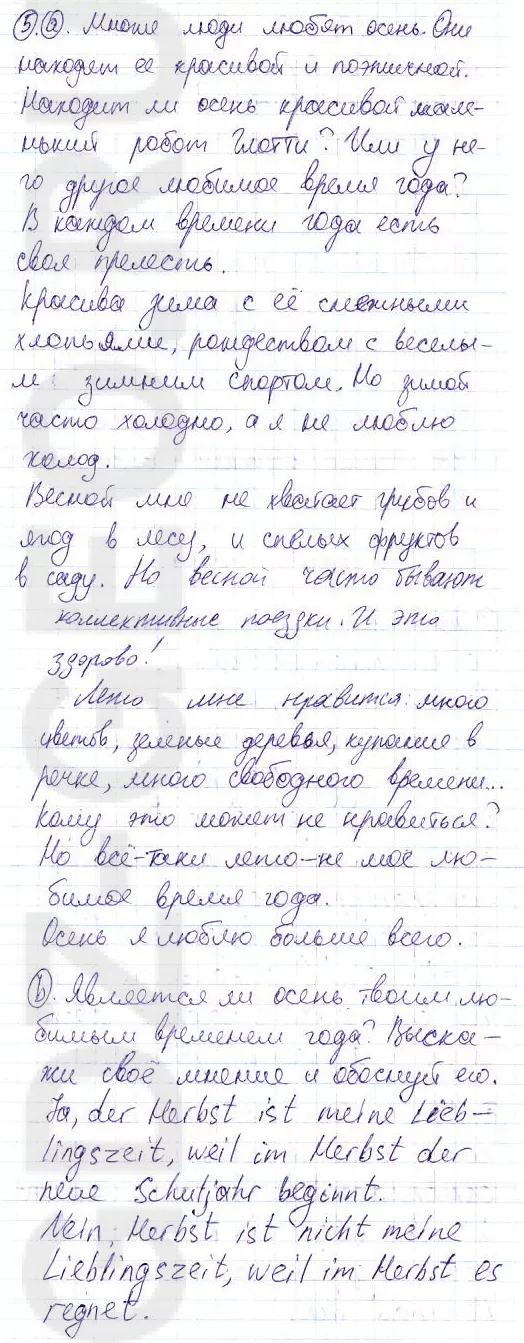 5. a. Многие люди любят осень. Они
находят ее красивой и поэтичной.
Находит ли осень красивой мале-
нький робот Глотти? Или у не-
го другое любимое время года?
В каждом времени года есть
своя прелесть.
Красива зима с её снежными
хлопьями, рождеством с веселы-
м зимним спортом. Но зимой
часто холодно, а я не люблю
холод.
Весной мне не хватает грибов и
ягод в лесу, и спелых фруктов
в саду. Но весной часто бывают
коллективные поездки. И это
здорово!
Лето мне нравится: много
цветов, зеленые деревья, купание в
речке, много свободного времени...
Кому это может не нравиться?
Но всё-таки лето-не моё лю-
бимое время года.
Осень я люблю больше всего.
b. Является ли осень твоим лю-
бимым временем года? Выска-
жи своё мнение и обоснуй его.
Ja, der Herbst ist meine Lieb-
lingszeit, weil im Herbst der
neue Schuljahr beginnt.
Nein, Herbst ist nicht meine
Lieblingszeit, weil im Herbst es
regnet.
GDZ-GEO.RU